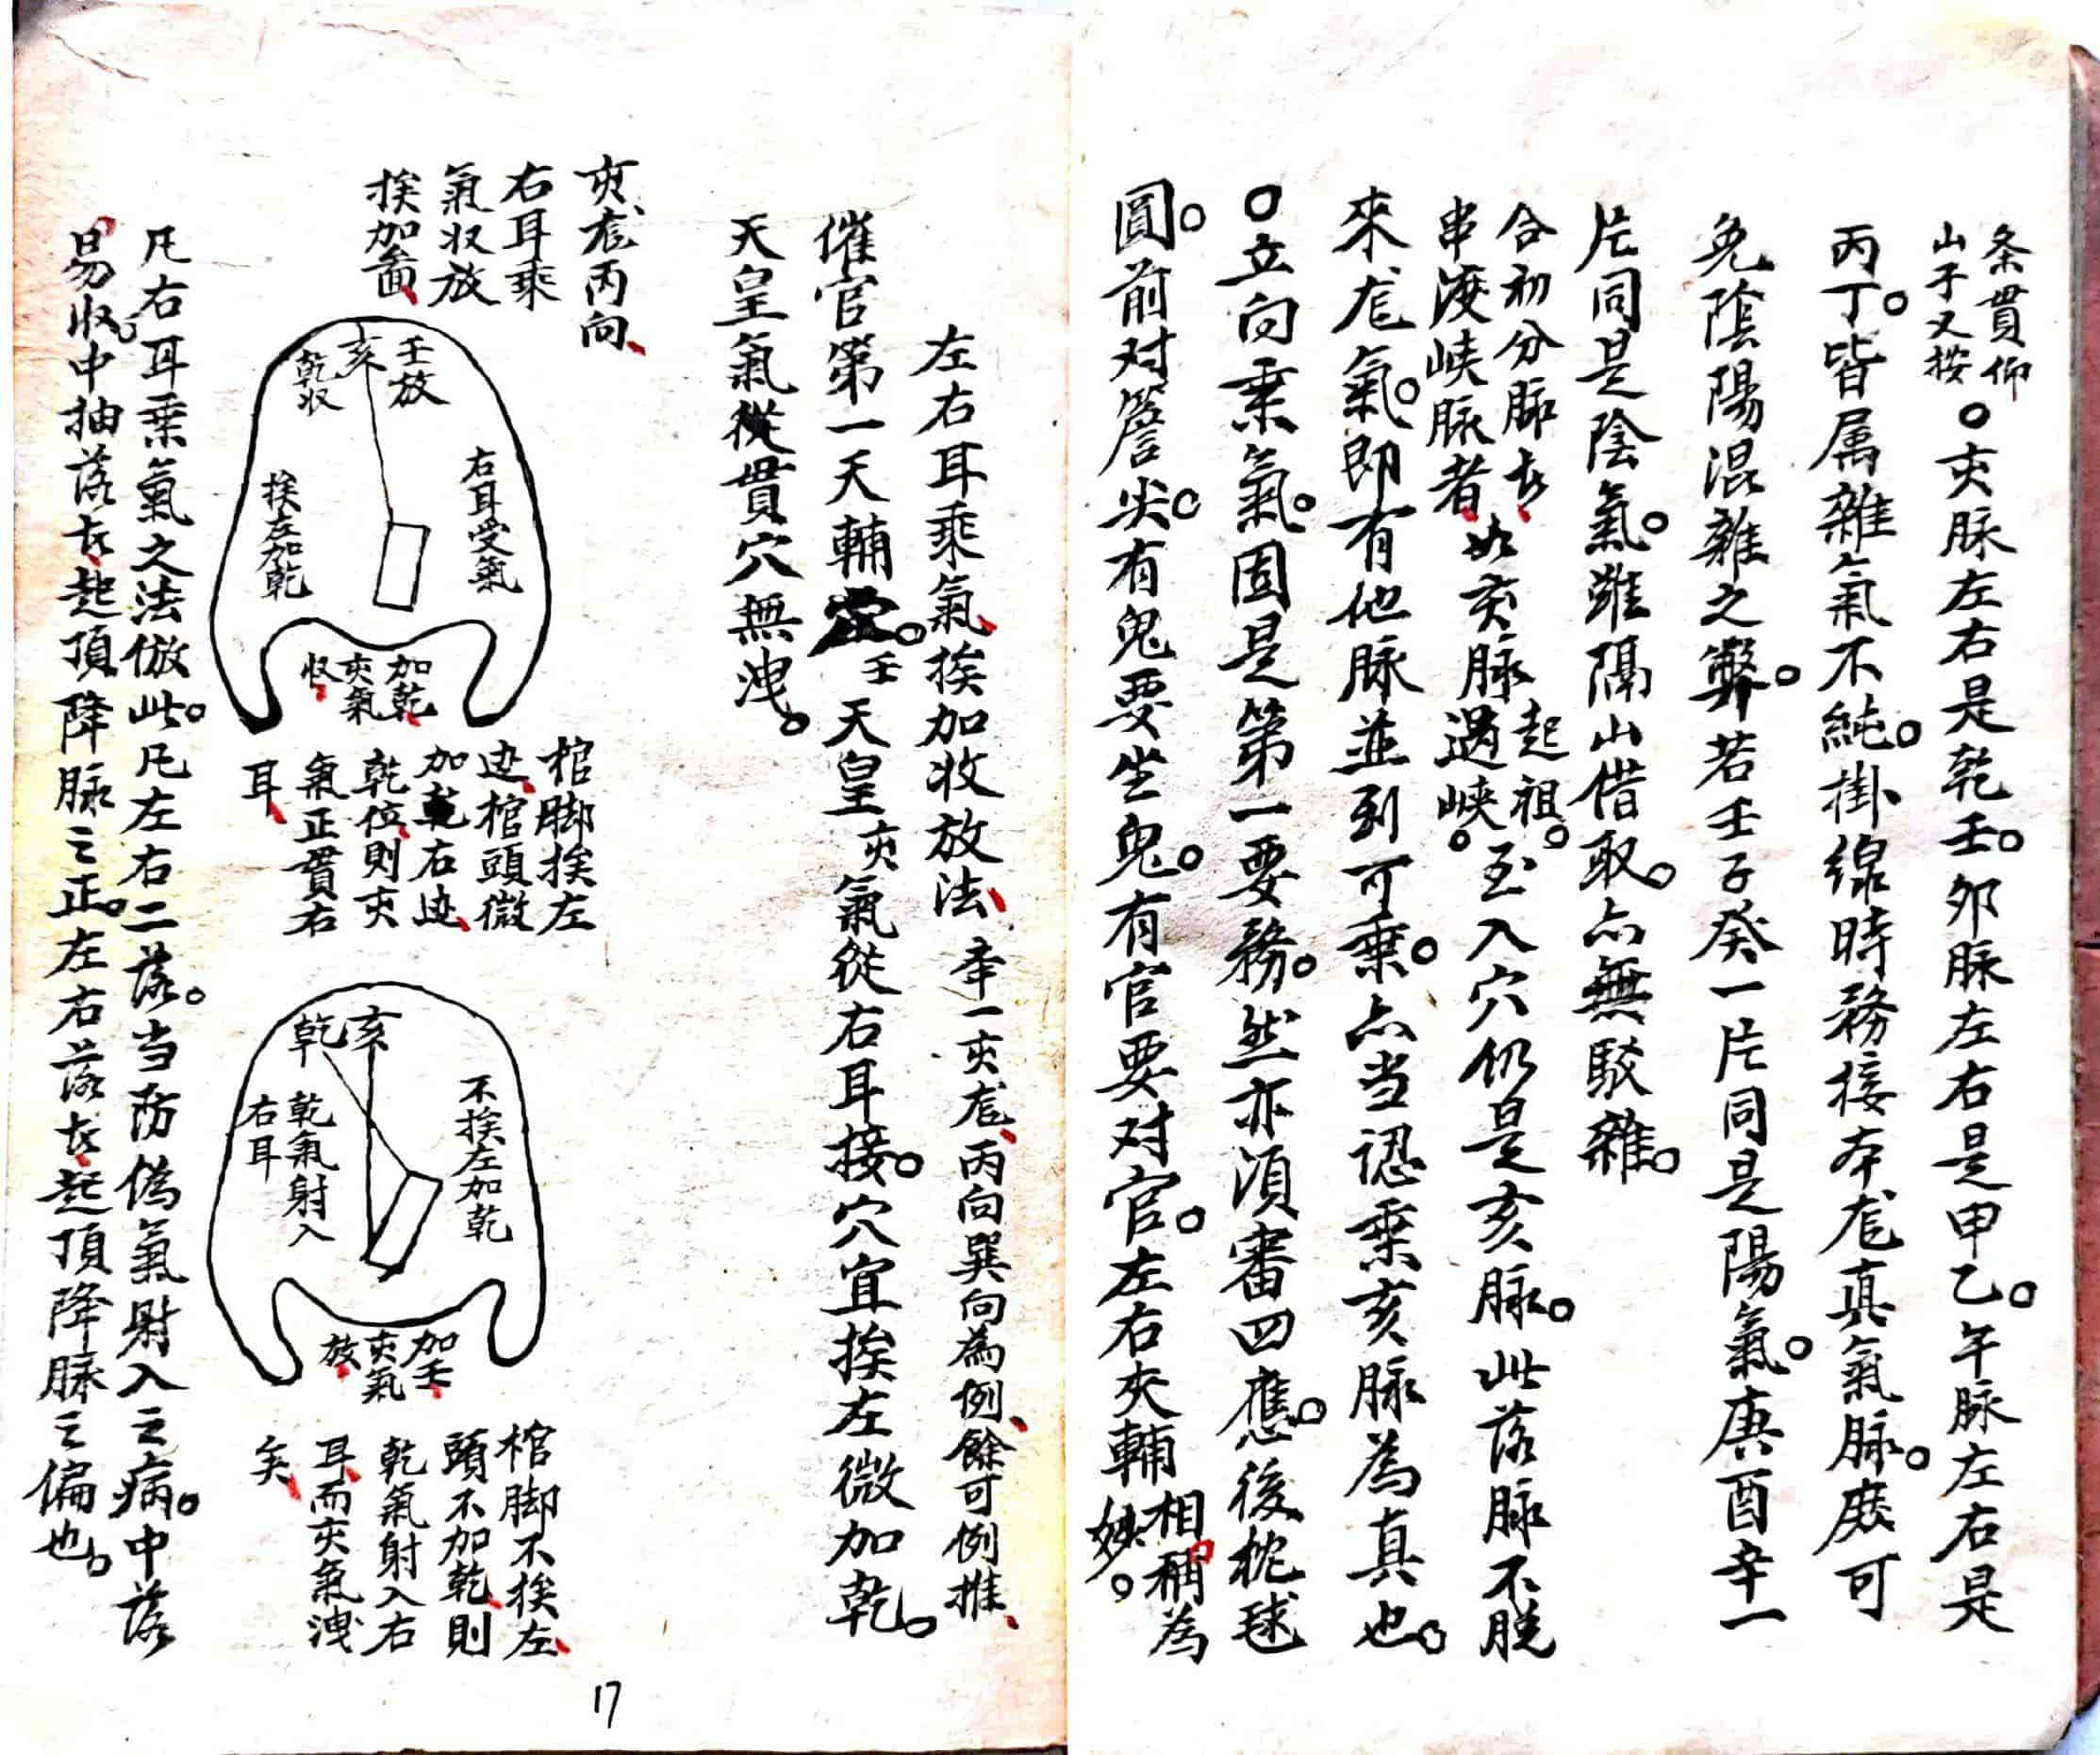 条貫仰
山子又按
○亥脉左右是乾壬。卯脉左右是甲乙。午脉左右是
丙丁。皆属雜氣不純。掛線時務接本龙真氣脉。庶可
免陰陽混雜之弊。若壬子癸一片同是陽氣。庚酉辛一
片同是陰氣。雖隔山借取。亦無駁雜。
合初分脉去、
串渡峡脉者、
如亥脉
起祖。
遇峡。
至入穴仍是亥脉。此落脉不脱
來龙氣。即有他脉並列可乘。亦当認乘亥脉為真也。
○立向乘氣。固是第一要務。然亦須審四應。後枕毬
圓。前对簷尖。有鬼要坐鬼。有官要对官。左右夾輔
相稱為
妙。
左右耳乘氣、挨加收放法、
幸一亥龙、丙向巽向為例、餘可例推、
催官第一天輔
壬
天皇
亥
氣從右耳接。穴宜挨左微加乾。
天皇氣從貫穴無洩。
亥龙丙向、
右耳乘
氣収放
挨加畣、
壬放
亥
乾収
右耳受氣
挨左加乾
加乾、
亥氣
収、
棺脚挨左
边、棺頭微
加乾右边、
乾位、則亥
氣正貫右
耳、
亥
乾
不挨左加乾
乾氣射入
右耳
加壬、
亥氣
放、
棺脚不挨左、
頭不加乾、則
乾氣射入右
耳、而亥氣洩
矣、
凡右耳乘氣之法倣此。凡左右二落。当防偽氣射入之病。中落
易収。中抽落去、起頂降脉之正。左右落去、起頂降脉之偏也。
17